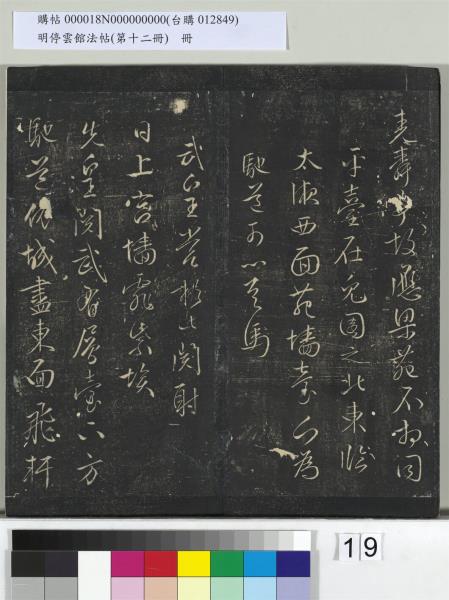 購帖 000018N000000000(台購 012849)
明停雲館法帖(第十二冊) 冊
故應梁苑不相同
平臺在兔園之北東臨
太液西面苑墻臺下為
馳道可以走馬
武皇昔於此閱射
日上宮墻霏紫埃
先皇閱武有層臺下方
馳道依城盡東面飛杆
19